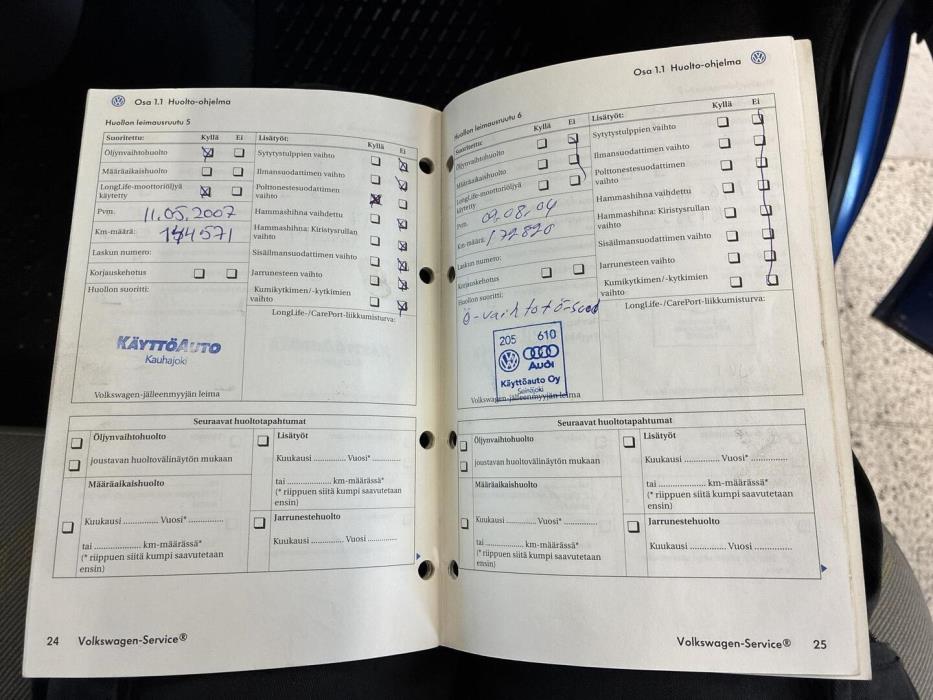 Osa 1.1 Huolto-ohjelma
Huollon leimausruutu 5
Suoritettu: Kyllä Ei
Öljynvaihtohuolto
Määräaikaishuolto
LongLife-moottoriöljyä
käytetty
Pvm. 11.05.2007
Km-määrä: 144571
Laskun numero:
Korjauskehotus
Huollon suoritti:
KÄYTTÖAUTO
Kauhajoki
Volkswagen-jälleenmyyjän leima
Lisätyöt: Kyllä Ei
Sytytystulppien vaihto
Ilmansuodattimen vaihto
Polttonestesuodattimen
vaihto
Hammashihna vaihdettu
Hammashihna: Kiristysrullan
vaihto
Sisäilmansuodattimen vaihto
Jarrunesteen vaihto
Kumikytkimen/-kytkimien
vaihto
LongLife-/CarePort-liikkumisturva:
Seuraavat huoltotapahtumat
Öljynvaihtohuolto
joustavan huoltovälinäytön mukaan
Määräaikaishuolto
Kuukausi .............. Vuosi* ..............
tai .................. km-määrässä*
(* riippuen siitä kumpi saavutetaan
ensin)
Lisätyöt
Kuukausi .............. Vuosi* ..............
tai .................. km-määrässä*
(* riippuen siitä kumpi saavutetaan
ensin)
Jarrunestehuolto
Kuukausi .............. Vuosi ..............
24 Volkswagen-Service®
Osa 1.1 Huolto-ohjelma
Huollon leimausruutu 6
Suoritettu: Kyllä Ei
Öljynvaihtohuolto
Määräaikaishuolto
LongLife-moottoriöljyä
käytetty
Pvm.
Km-määrä: 172820
Laskun numero:
Korjauskehotus
Huollon suoritti:
205 610
Audi
Käyttöauto Oy
Seinäjoki
Volkswagen-jälleenmyyjän leima
Lisätyöt: Kyllä Ei
Sytytystulppien vaihto
Ilmansuodattimen vaihto
Polttonestesuodattimen
vaihto
Hammashihna vaihdettu
Hammashihna: Kiristysrullan
vaihto
Sisäilmansuodattimen vaihto
Jarrunesteen vaihto
Kumikytkimen/-kytkimien
vaihto
LongLife-/CarePort-liikkumisturva:
Seuraavat huoltotapahtumat
Öljynvaihtohuolto
joustavan huoltovälinäytön mukaan
Määräaikaishuolto
Kuukausi .............. Vuosi* ..............
tai .................. km-määrässä*
(* riippuen siitä kumpi saavutetaan
ensin)
Lisätyöt
Kuukausi .............. Vuosi* ..............
tai .................. km-määrässä*
(* riippuen siitä kumpi saavutetaan
ensin)
Jarrunestehuolto
Kuukausi .............. Vuosi ..............
Volkswagen-Service® 25